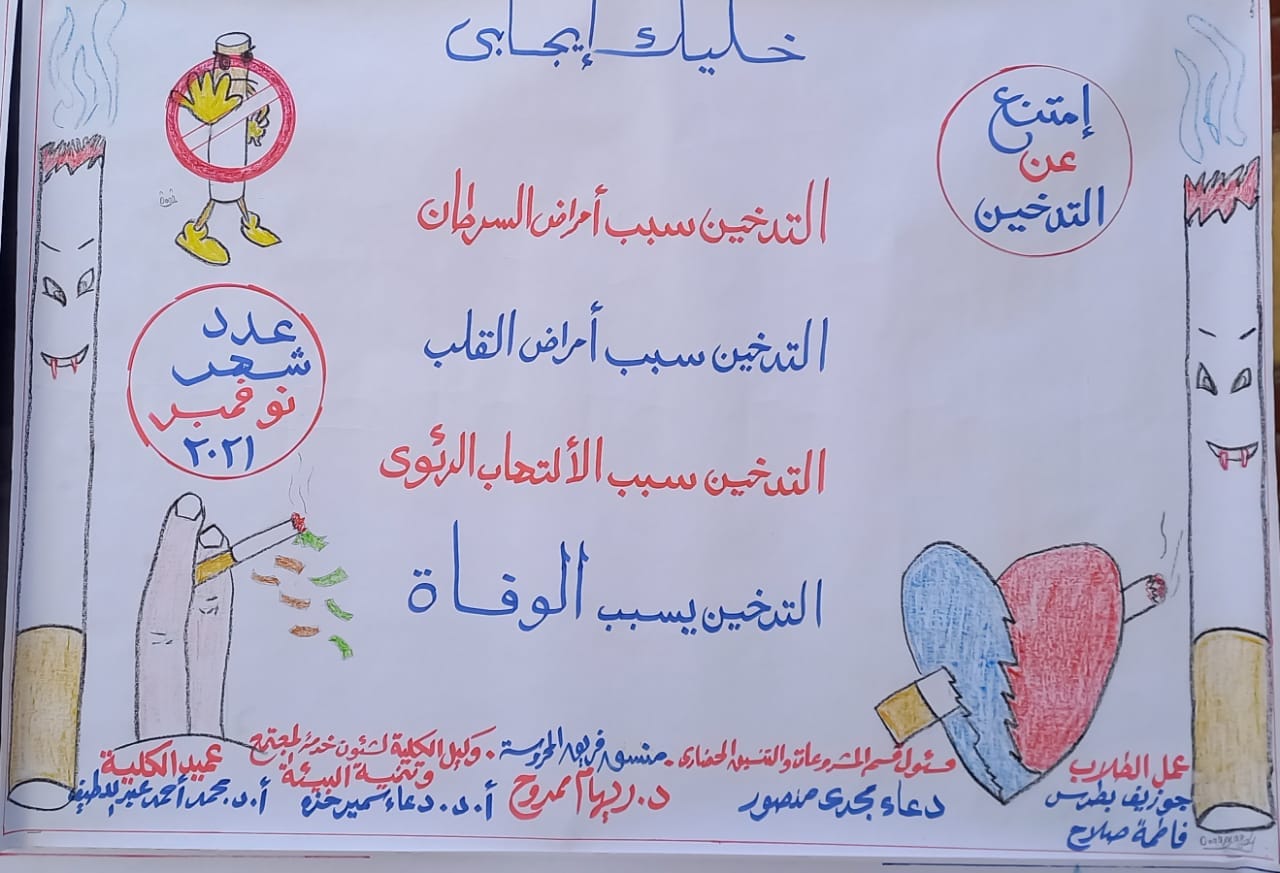 خليك إيجابى
إمتنع
عن
التدخين
التدخين سبب أمراض السرطان
عدد
شهر
نوفمبر
٢٠٢١
التدخين سبب أمراض القلب
التدخين سبب الألتهاب الرئوى
التدخين يسبب الوفاة
عمل الطلاب
جوزيف بطرس
فاطمة صلاح
مسئولة قسم المشروعات والتنسيق الحضارى
دعاء مجدى منصور
منسق فريق المحروسة
د. ريهام ممدوح
وكيل الكلية لشئون خدمة المجتمع
وتنمية البيئة
أ.د. دعاء سمير حزه
عميد الكلية
أ.د. محمد أحمد عبداللطيف